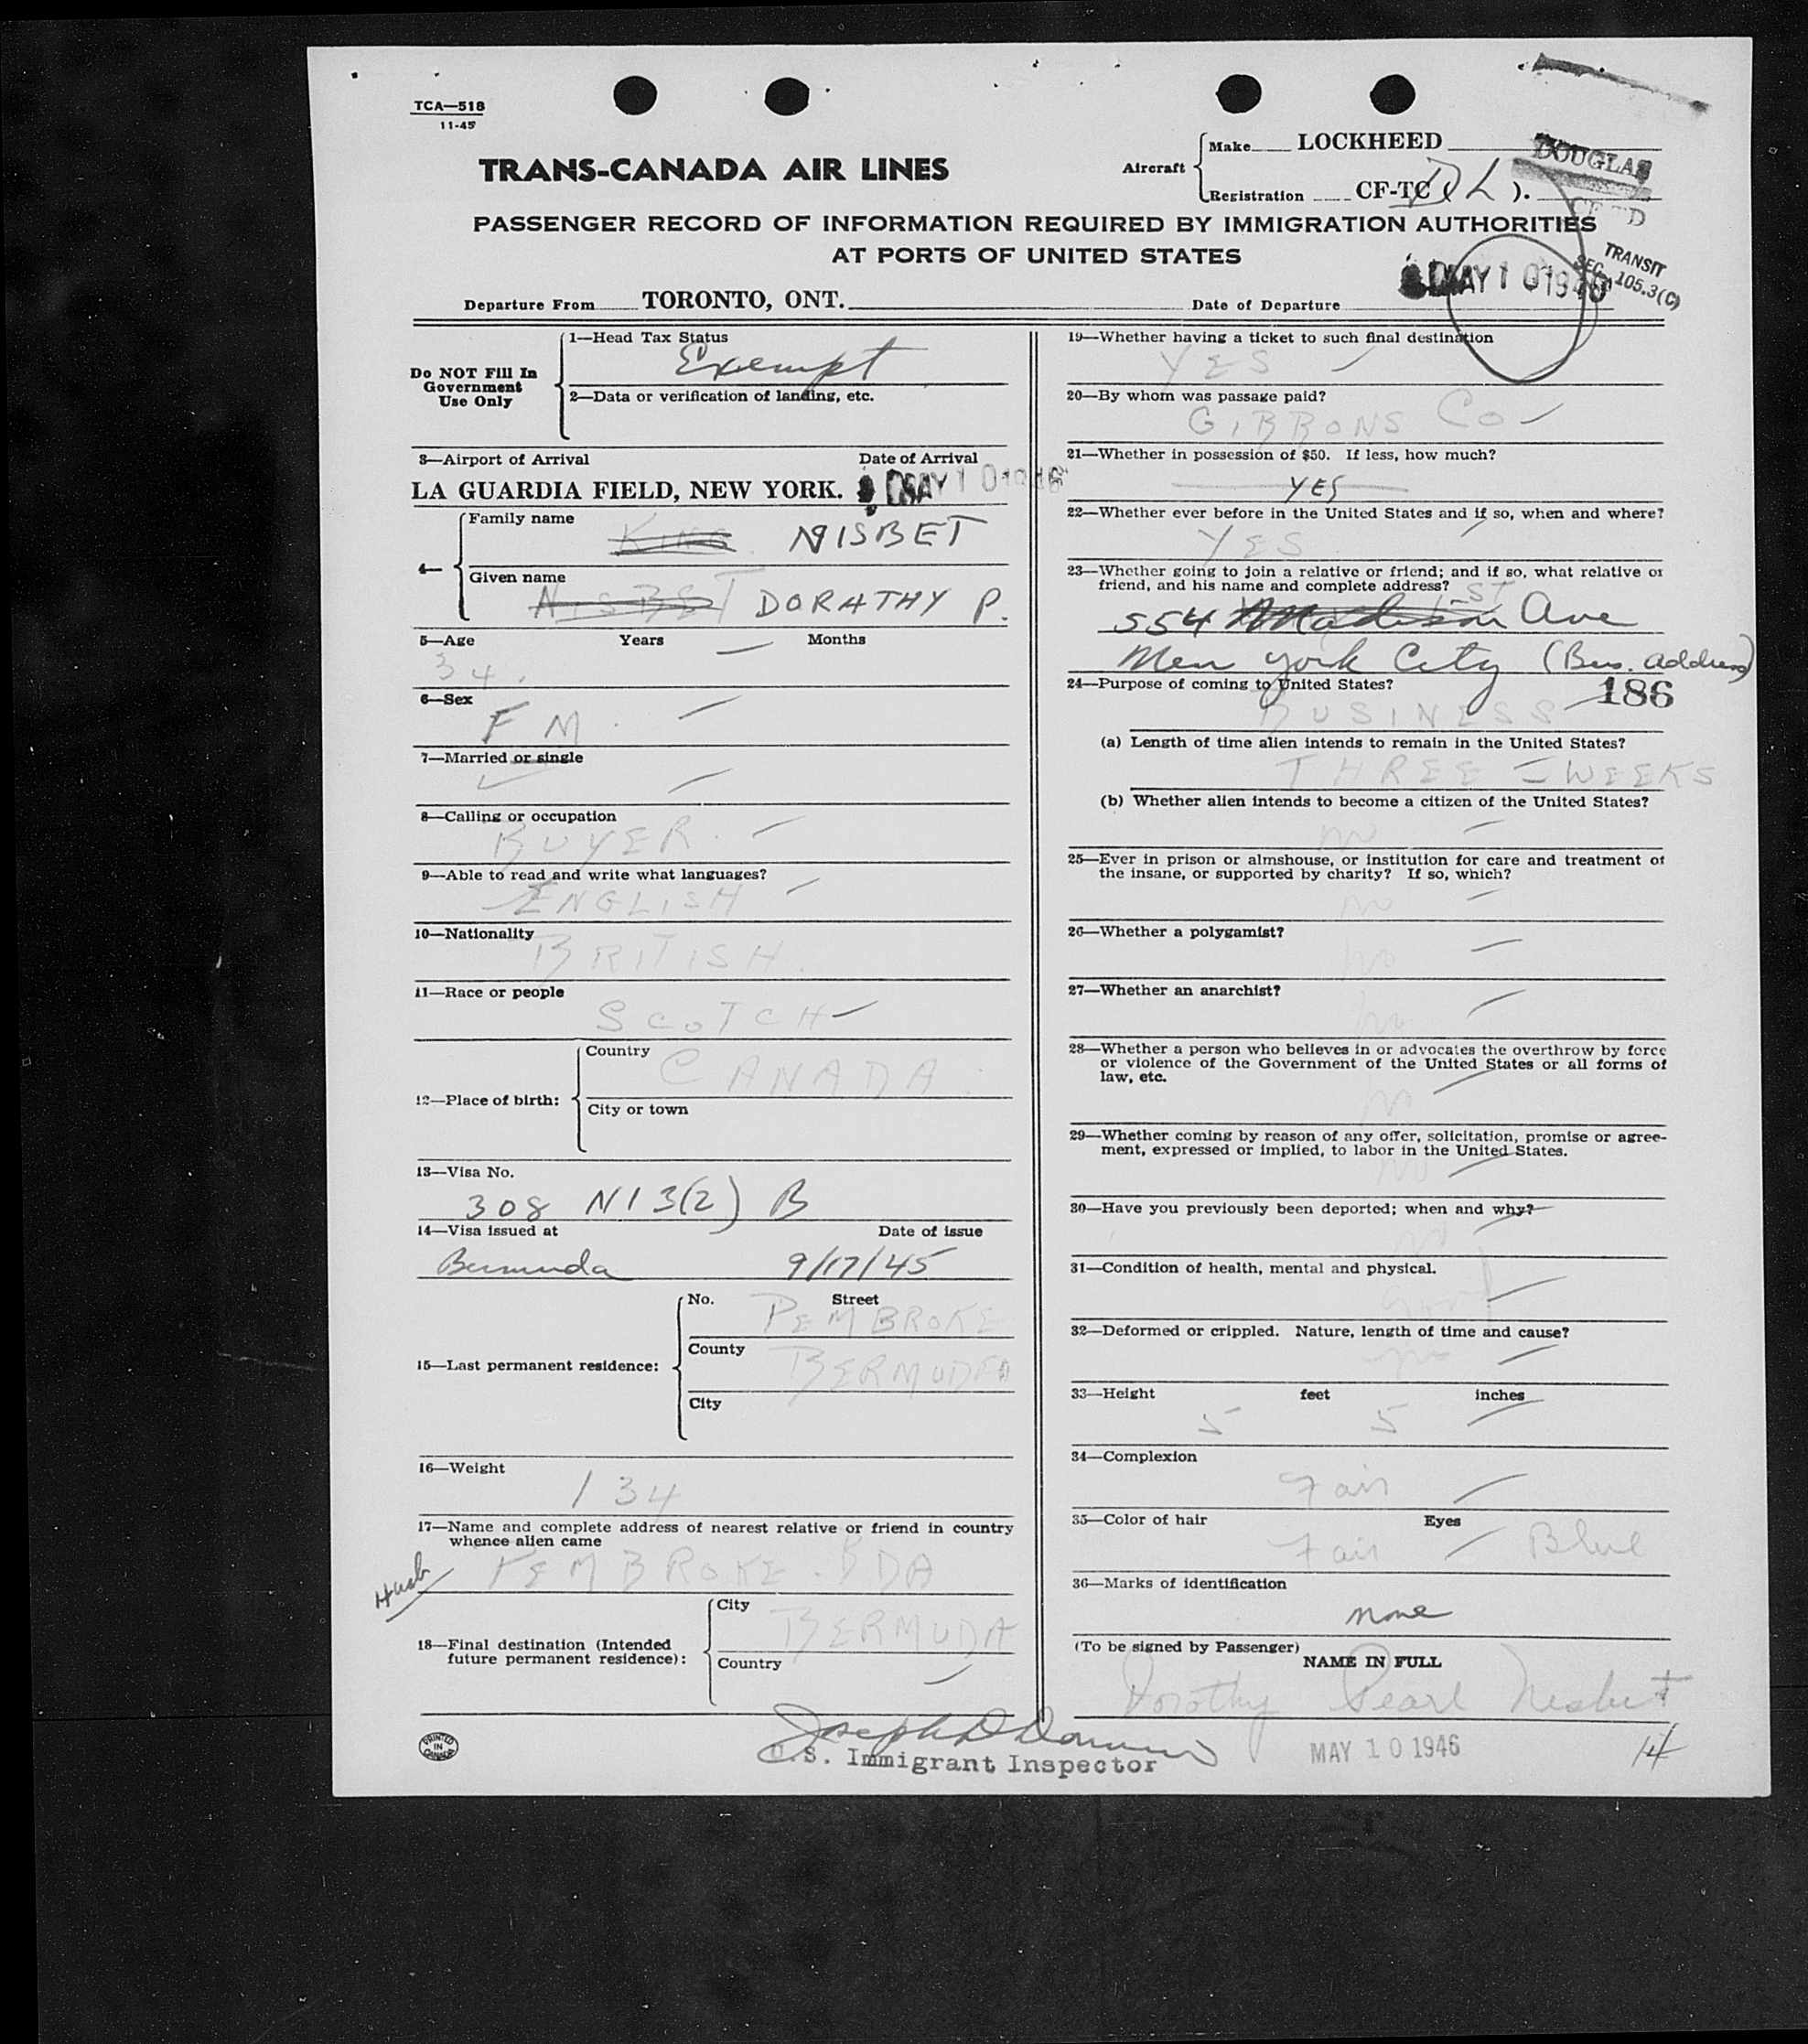 TCA—518
11-45
TRANS-CANADA AIR LINES
Aircraft
Make LOCKHEED
DOUGLAS
Registration CF-TC ( DL ).
CF TD
PASSENGER RECORD OF INFORMATION REQUIRED BY IMMIGRATION AUTHORITIES
AT PORTS OF UNITED STATES
TRANSIT
SEC. 105.3(C)
Departure From TORONTO, ONT. Date of Departure MAY 10 1946
Do NOT Fill In
Government
Use Only
1—Head Tax Status
Exempt
2—Data or verification of landing, etc.
3—Airport of Arrival Date of Arrival
LA GUARDIA FIELD, NEW YORK. MAY 10 1946
4—
Family name
KING NISBET
Given name
NISBET DORATHY P.
5—Age Years Months
34.
6—Sex
F M.
7—Married or single
8—Calling or occupation
BUYER.
9—Able to read and write what languages?
ENGLISH
10—Nationality
BRITISH.
11—Race or people
SCOTCH
12—Place of birth:
Country
CANADA
City or town
13—Visa No.
308 N13(2) B
14—Visa issued at Date of issue
Bermuda 9/17/45
15—Last permanent residence:
No. Street
PEMBROKE
County
BERMUDA
City
16—Weight
134
17—Name and complete address of nearest relative or friend in country
whence alien came
Husb PEMBROKE. BDA
18—Final destination (Intended
future permanent residence):
City
BERMUDA
Country
19—Whether having a ticket to such final destination
YES
20—By whom was passage paid?
GIBBONS Co
21—Whether in possession of $50. If less, how much?
YES
22—Whether ever before in the United States and if so, when and where?
YES
23—Whether going to join a relative or friend; and if so, what relative or
friend, and his name and complete address?
ST
554 Madison Ave
New York City (Bus. address)
24—Purpose of coming to United States?
186
BUSINESS
(a) Length of time alien intends to remain in the United States?
THREE - WEEKS
(b) Whether alien intends to become a citizen of the United States?
no
25—Ever in prison or almshouse, or institution for care and treatment of
the insane, or supported by charity? If so, which?
no
26—Whether a polygamist?
no
27—Whether an anarchist?
no
28—Whether a person who believes in or advocates the overthrow by force
or violence of the Government of the United States or all forms of
law, etc.
no
29—Whether coming by reason of any offer, solicitation, promise or agree-
ment, expressed or implied, to labor in the United States.
no
30—Have you previously been deported; when and why?
no
31—Condition of health, mental and physical.
good
32—Deformed or crippled. Nature, length of time and cause?
no
33—Height feet inches
5 5
34—Complexion
Fair
35—Color of hair Eyes
Fair Blue
36—Marks of identification
none
(To be signed by Passenger)
NAME IN FULL
Dorothy Pearl Nesbit
PRINTED IN CANADA
Joseph D
U.S. Immigrant Inspector
MAY 10 1946
14